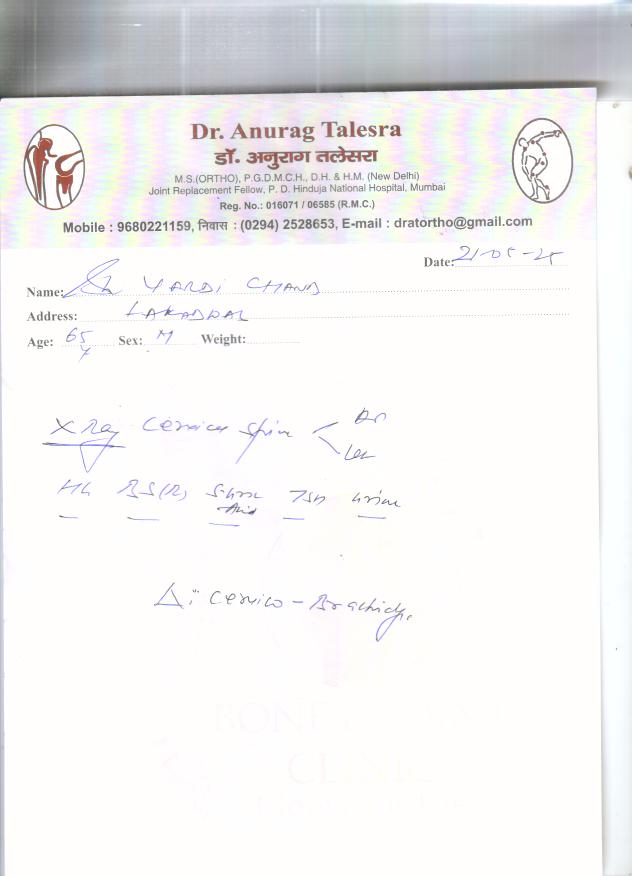 Dr. Anurag Talesra
डॉ. अनुराग तलेसरा
M.S.(ORTHO), P.G.D.M.C.H., D.H. & H.M. (New Delhi)
Joint Replacement Fellow, P. D. Hinduja National Hospital, Mumbai
Reg. No.: 016071 / 06585 (R.M.C.)
Mobile : 9680221159, निवास : (0294) 2528653, E-mail : dratortho@gmail.com
Date: 21-05-25
Name: VARDI CHAND
Address: LAKADWAL
Age: 65 y Sex: M Weight:
X Ray Cervical Spine < AP
Lat
BS(R) S. Uric Acid TSH Urine
Δ: Cervico-Brachialgia
BONE
CLINIC